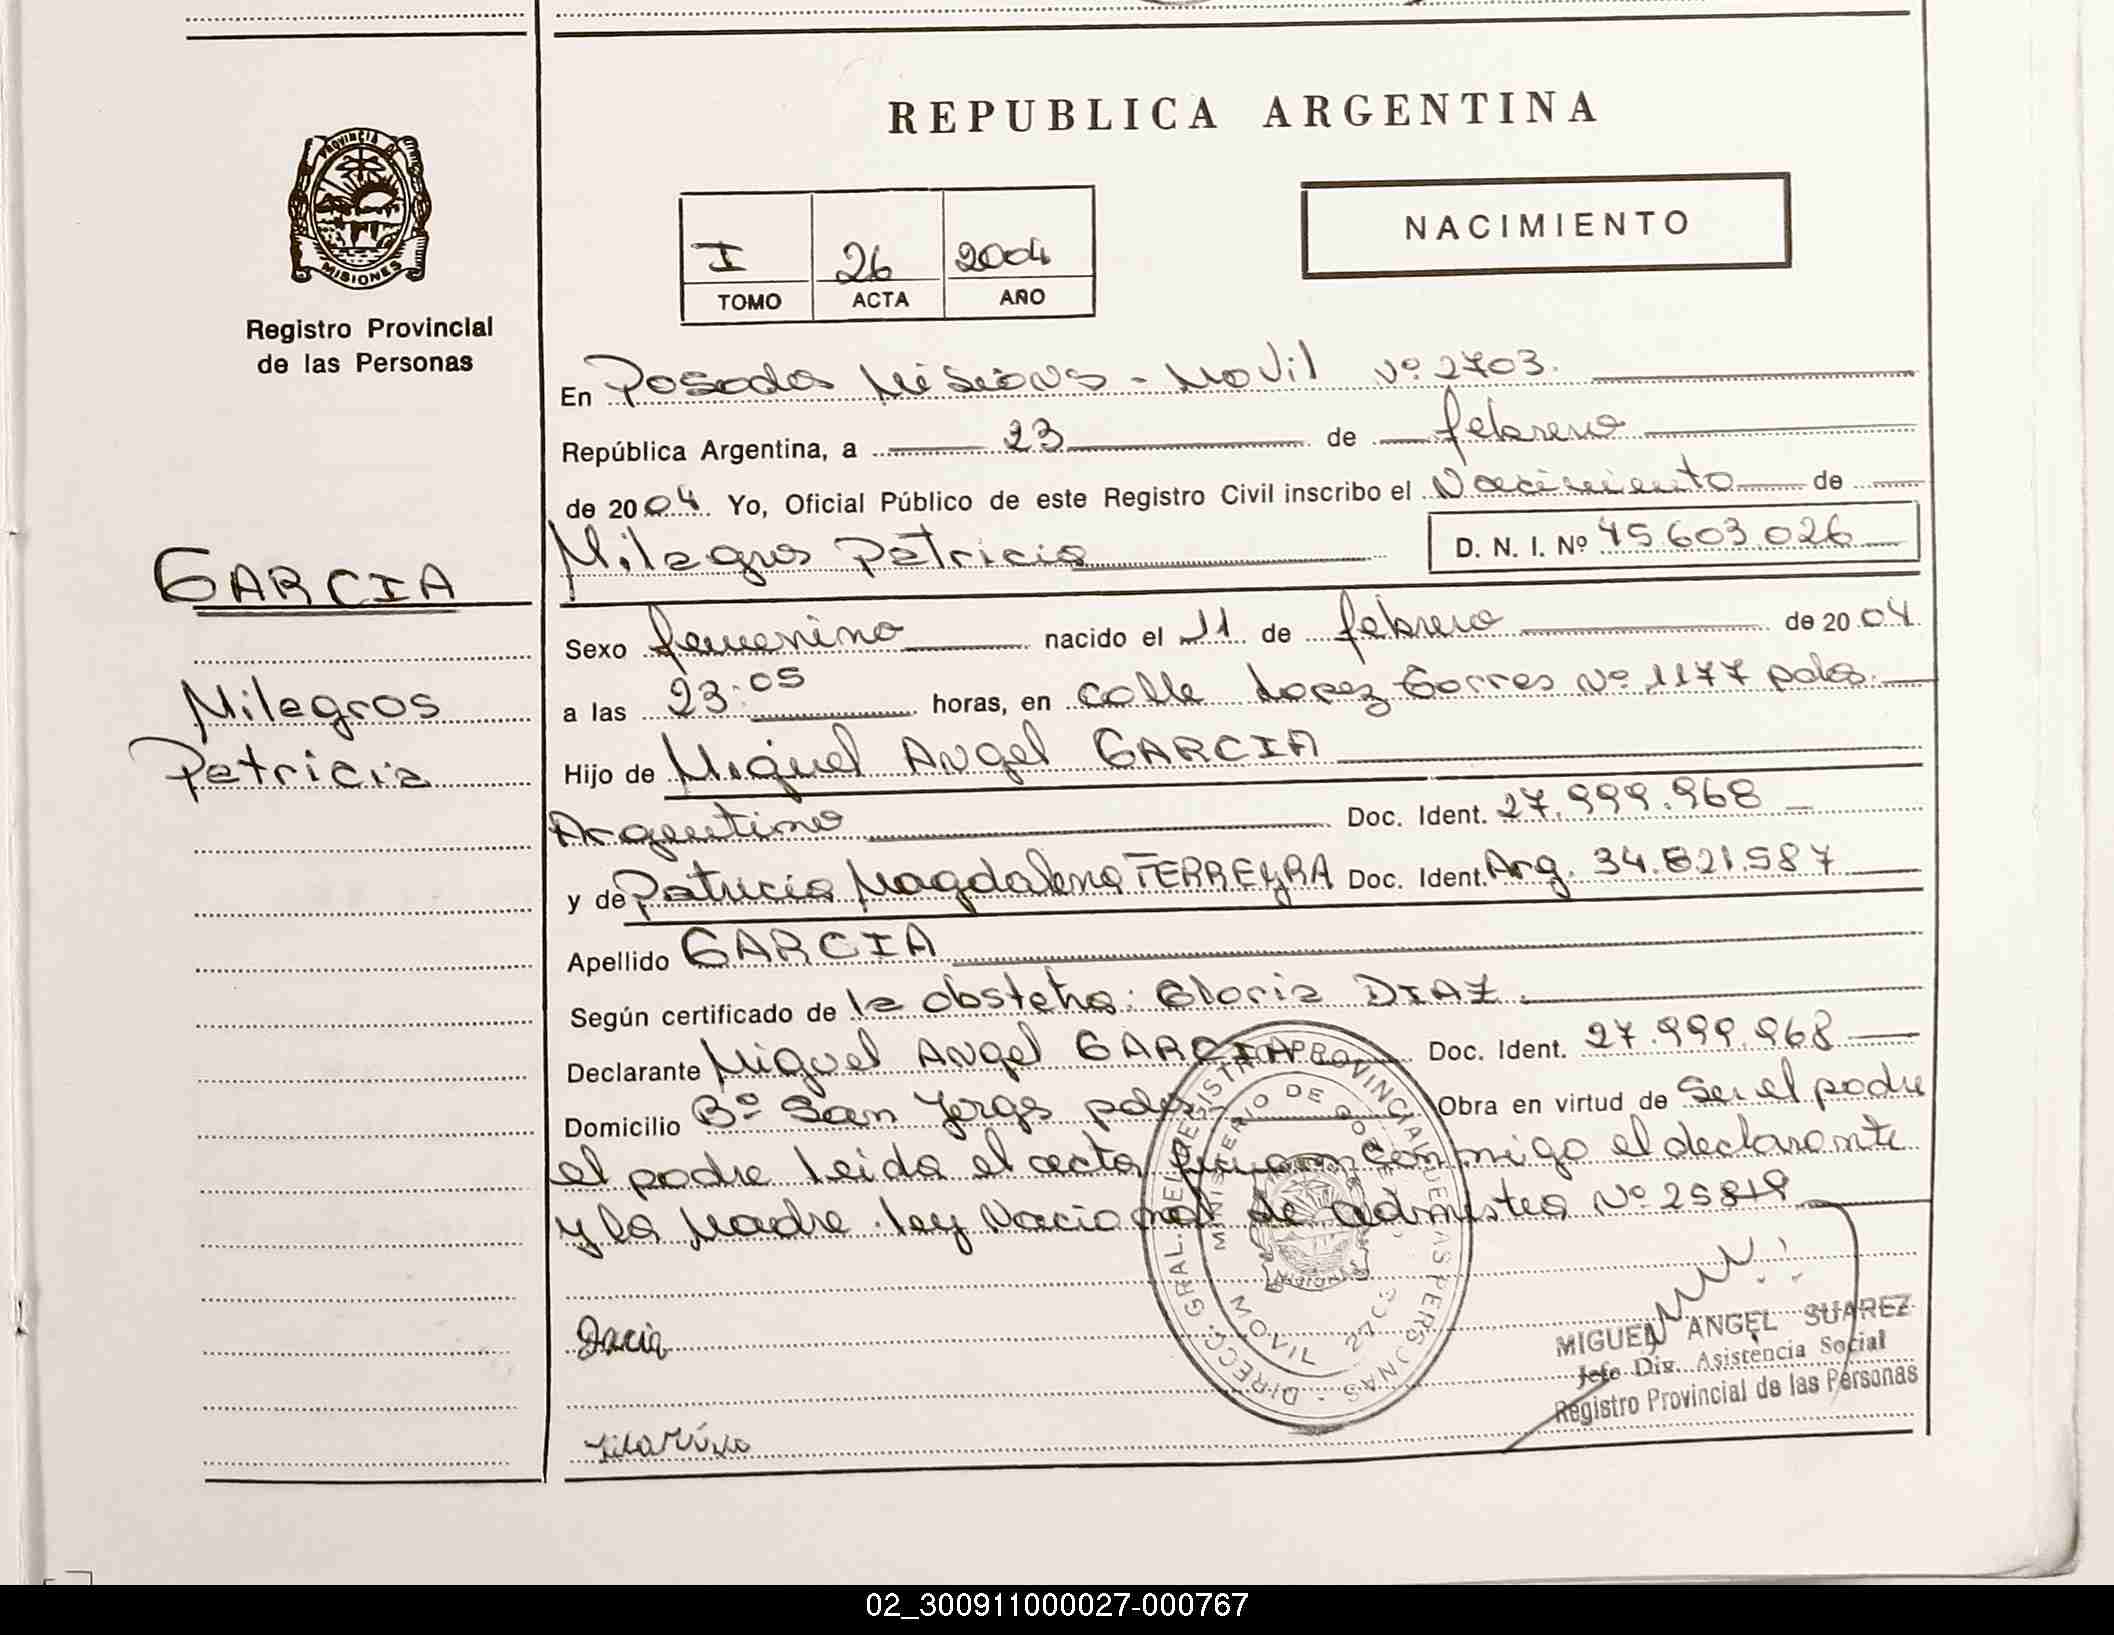 REPUBLICA ARGENTINA
PROVINCIA DE
MISIONES
Registro Provincial
de las Personas
NACIMIENTO
I 26 2004
TOMO ACTA AÑO
En Posadas Misiones - Movil Nº 2703.
República Argentina, a 23 de febrero
de 2004 Yo, Oficial Público de este Registro Civil inscribo el Nacimiento de
Milagros Patricia D. N. I. Nº 45.603.026
GARCIA
Milagros
Patricia
Sexo femenino nacido el 11 de febrero de 2004
a las 23:05 horas, en calle Lopez Torres Nº 1177 pdas.
Hijo de Miguel Angel GARCIA
Argentino Doc. Ident. 27.999.968
y de Patricia Magdalena FERREYRA Doc. Ident. Arg. 34.821.587
Apellido GARCIA
Según certificado de la obstetra: Gloria DIAZ.
Declarante Miguel Angel GARCIA Doc. Ident. 27.999.968
Domicilio Bº San Jorge pdas Obra en virtud de Ser el padre
el padre leida el acta firman conmigo el declarante
y la Madre. ley Nacional de Nº 25819
DIRECC. GRAL. DEL REGISTRO PROVINCIAL DE LAS PERSONAS
MINISTERIO DE GOBIERNO
MISIONES
MOVIL 2703
MIGUEL ANGEL SUAREZ
Jefe Div. Asistencia Social
Registro Provincial de las Personas
02_300911000027-000767